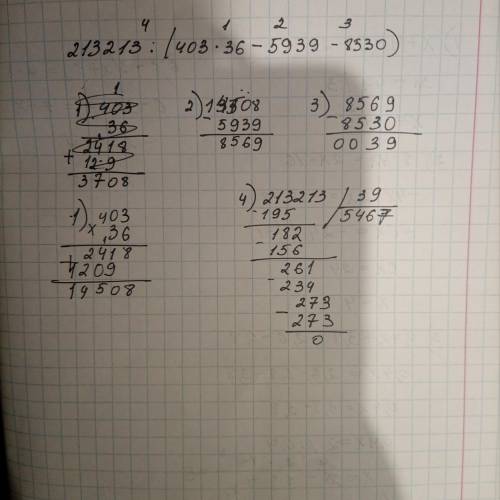 4 1 2 3
213213 : (403·36 - 5939 - 8530)
1) 403
36
2418
+ 12 9
3708
2) 14508
- 5939
8569
3) 8569
- 8530
0039
1) 403
× 36
+ 2418
1209
14508
4) 213213 / 39
- 195 / 5467
- 182
156
- 261
234
- 273
273
0